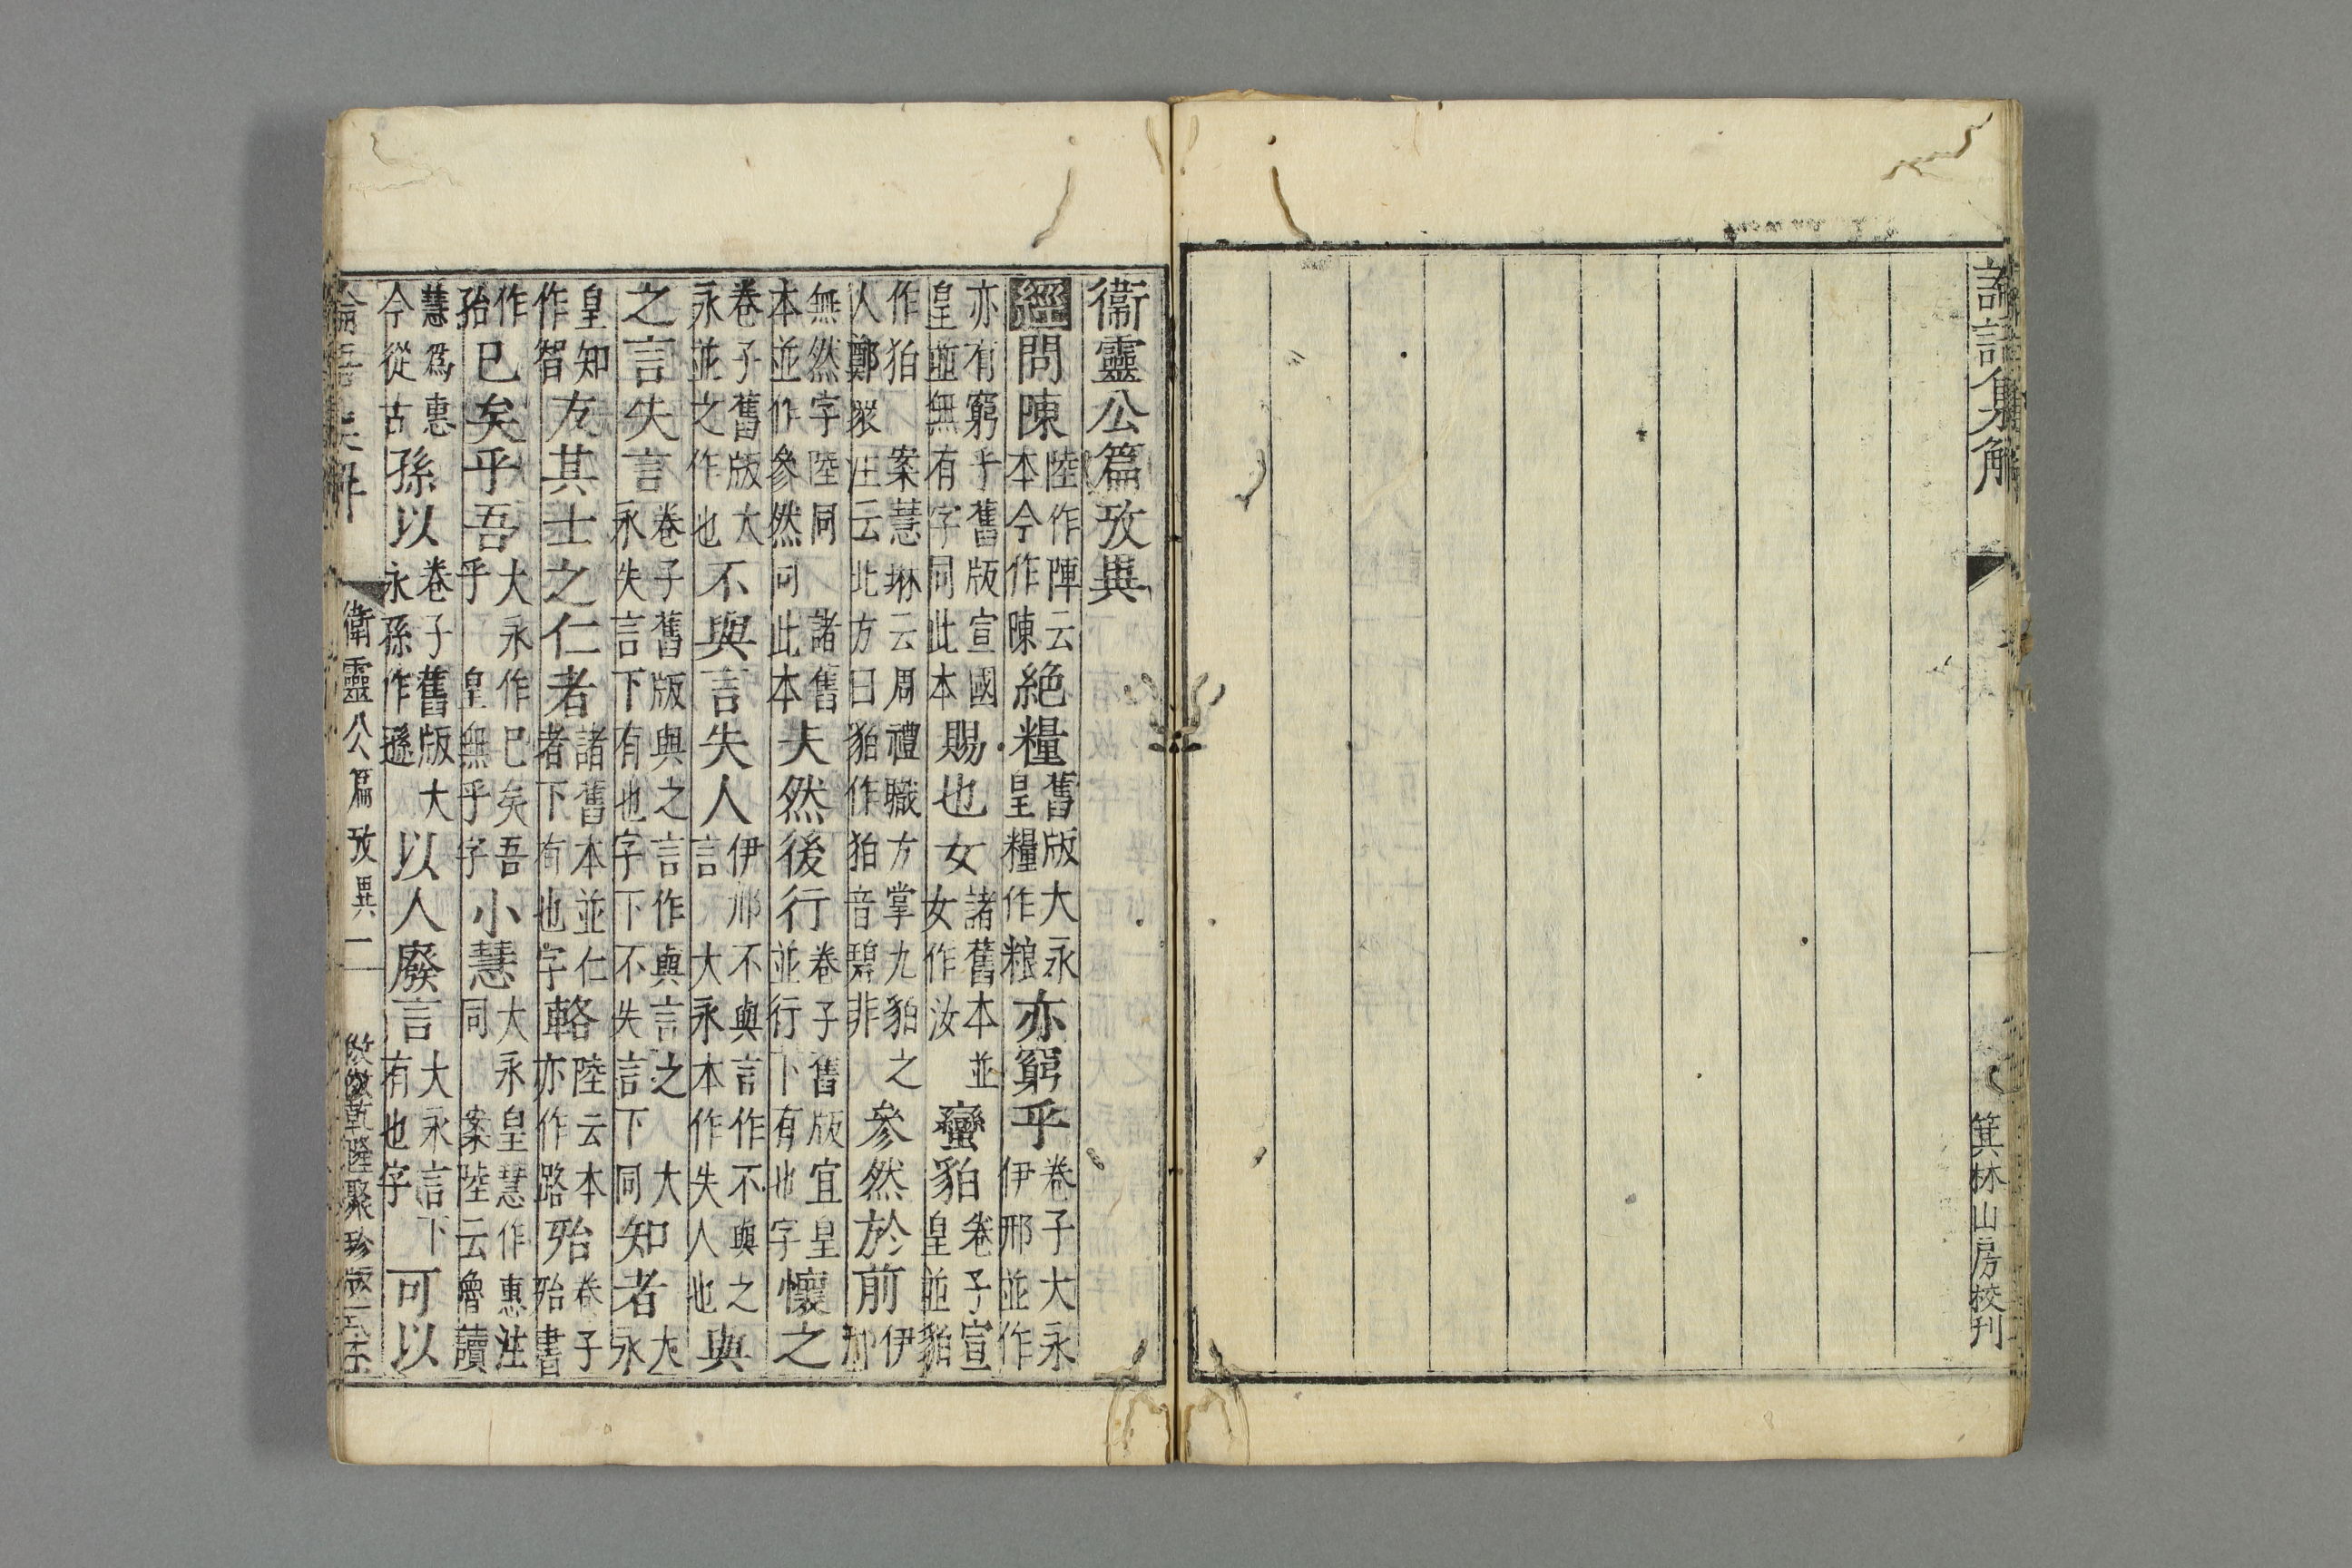 論語集解
一
箕林山房校刊
衞靈公篇攷異
經問陳陸作陣云本今作陳絕糧舊版大永皇糧作粮亦窮乎卷子大永伊邢並作
亦有窮乎舊版宣國皇並無有字同此本賜也女諸舊本並女作汝蠻貊卷子宣皇並貊
作狛 案慧琳云周禮職方掌九貊之人鄭衆注云北方曰貊作狛音碧非參然於前伊邢
無然字陸同 諸舊本並作參然同此本夫然後行卷子舊版宜皇並行下有也字懷之
卷子舊版大永並之作也不與言失人伊邢不與言作不與之言 大永本作失人也與
之言失言卷子舊版與之言作與言之 大永失言下有也字下不失言下同知者大永
皇知作智友其士之仁者諸舊本並仁者下有也字輅陸云本亦作路殆卷子殆書
作殆已矣乎吾大永作已矣吾乎 皇無乎字小慧大永皇慧作惠注同 案陸云魯讀
慧爲惠今從古孫以卷子舊版大永孫作遜以人廢言大永言下有也字可以
論語集解
衛靈公篇攷異
一
乾隆聚珍版式